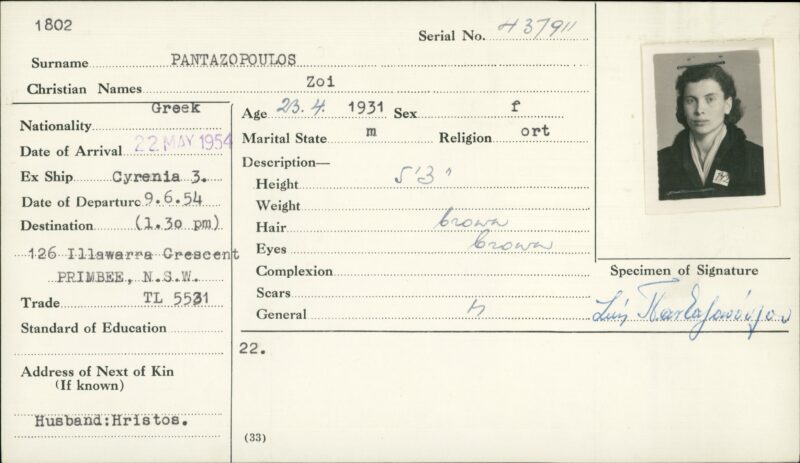 1802
Serial No. 437911
Surname PANTAZOPOULOS
Christian Names Zoi
Nationality Greek
Date of Arrival 22 MAY 1954
Ex Ship Cyrenia 3.
Date of Departure 9.6.54
Destination (1.30 pm)
126 Illawarra Crescent
PRIMBEE, N.S.W.
Trade TL 5531
Standard of Education
Address of Next of Kin
(If known)
Husband:Hristos.
Age 23.4. 1931 Sex f
Marital State m Religion ort
Description—
Height 5'3"
Weight
Hair brown
Eyes brown
Complexion
Scars
General
22.
(33)
Specimen of Signature
Ζωή Πανταζοπούλου